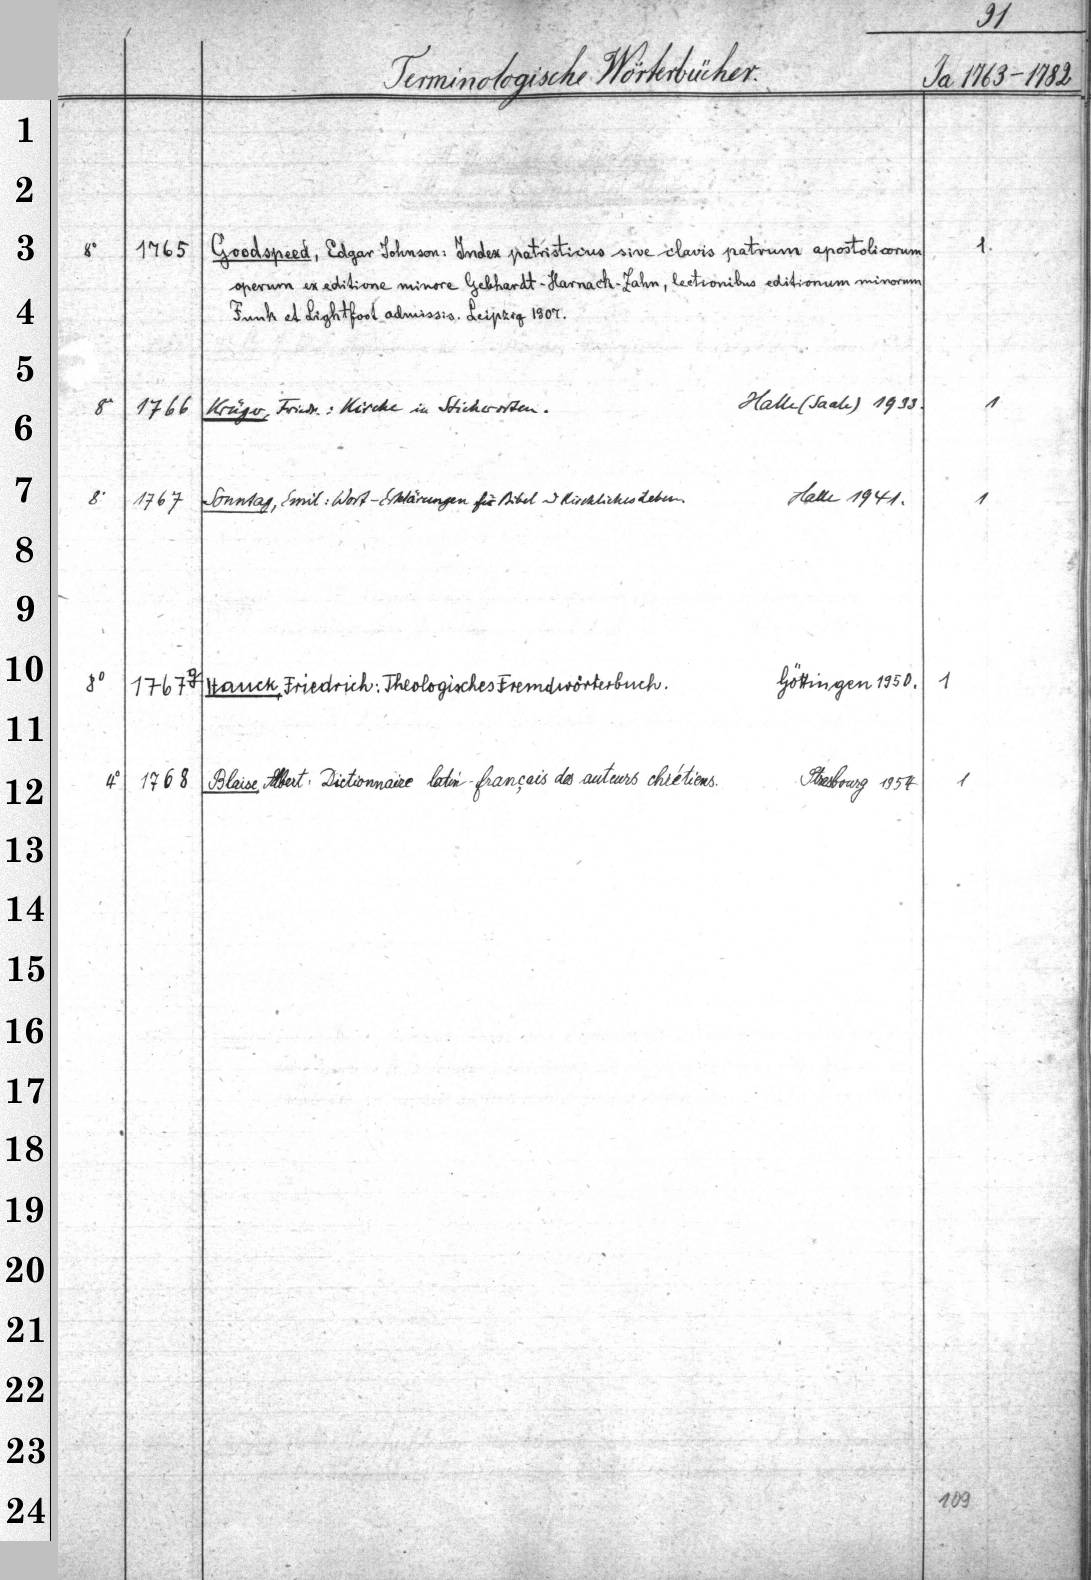 91
Terminologische Wörterbücher. Ia 1763-1782
1
2
3 8° 1765 Goodspeed, Edgar Johnson: Index patristicus sive clavis patrum apostolicorum 1.
operum ex editione minore Gebhardt-Harnack-Zahn, lectionibus editionum minorum
4 Funk et Lightfoot admissis. Leipzig 1907.
5
8° 1766 Krüger, Friedr.: Kirche in Stichworten. Halle (Saale) 1933. 1
6
7 8° 1767 Sonntag, Emil: Wort-Erklärungen für Bibel u Kirchliches Leben. Halle 1941. 1
8
9
10 8° 1767 g Hauck, Friedrich: Theologisches Fremdwörterbuch. Göttingen 1950. 1
11
12 4° 1768 Blaise, Albert: Dictionnaire latin-français des auteurs chrétiens. Strasbourg 1954 1
13
14
15
16
17
18
19
20
21
22
23
24 109